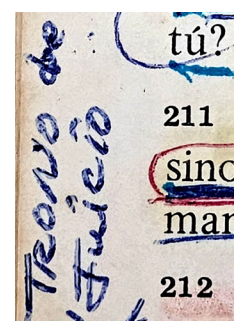 Trono de
Juicio
tú?
211
sino
mar
212